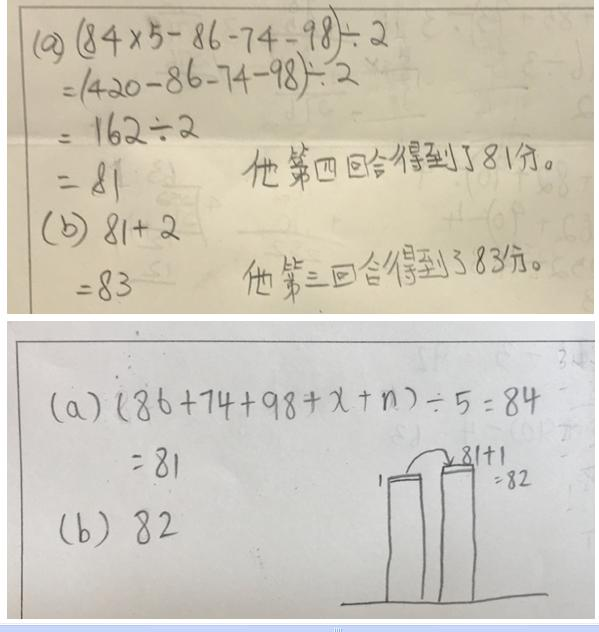 (a) (84×5-86-74-98)÷2
=(420-86-74-98)÷2
= 162÷2
= 81 他第四回合得到了81分。
(b) 81+2
=83 他第三回合得到了83分。
(a) (86+74+98+x+n)÷5=84
= 81
1 81+1
=82
(b) 82